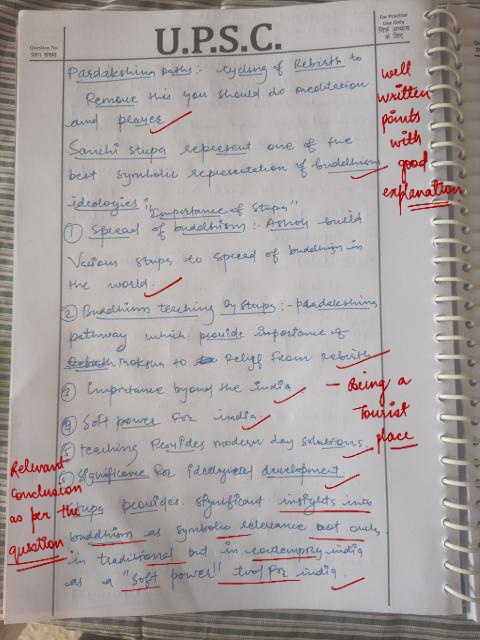 U.P.S.C.
Question No.
प्रश्न संख्या
For Practice
Use Only
सिर्फ अभ्यास
के लिए
Pardakshina paths:- cycling of Rebirth to
Remove this you should do meditation
and player
Sanchi stupa represent one of the
best symbolic representation of buddhism
ideologies "Importance of Stups"
① Spread of buddhism:- Ashok build
Various stups to spread of buddhism in
the world.
② Buddhism teaching by stups:- pradakshina
pathway which provide importance of
moksha to Relief from rebirth
③ Importance byond the india
④ Soft power for india.
⑤ teaching Provides modern day solutions.
⑥ Significance for ideological development.
stups provides significant insights into
buddhism as symbolic relevance not only
in traditional but in contempory india
as a "soft power" tool for india.
well
written
points
with
good
explanation
- Being a
Tourist
place
Relevant
conclusion
as per the
question